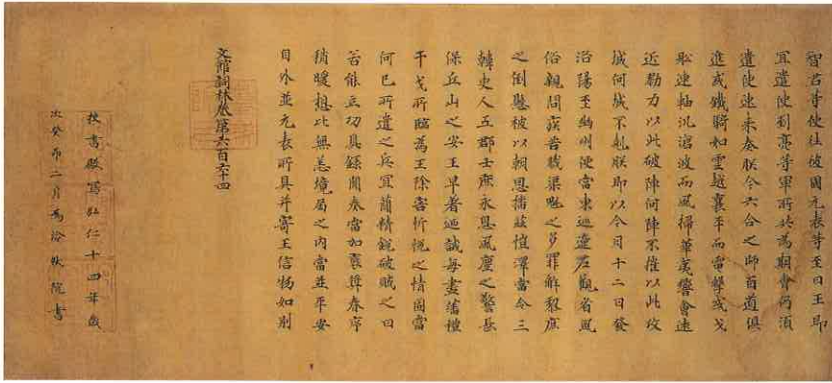 智者等使往彼國元表等至日王即
宜遣使到亮等軍所共為期會仍須
遣使速來奏朕今六合之師首道俱
進或鐵騎如雲越襄平而電擊或戈
船連軸汎滄波而風掃華夷響會遠
近勠力以此破陣何陣不摧以此攻
城何城不剋朕即以今月十二日發
洛陽至幽州便當東巡遼碣觀省風
俗親問疾苦戮渠魁之多罪解黎庶
之倒懸被以朝恩播茲愷澤當令三
韓史人五郡士庶永息風塵之警長
保丘山之安王早著迺誠每盡藩禮
干戈所臨為王除害忻悅之情固當
何已所遣之兵宜簡精銳破賊之日
若能立功具錄聞奏當加褒獎春序
稍暖想比無恙境局之內當並平安
目外並元表所具并寄王信物如別
文館詞林卷第六百六十四
校書殿寫弘仁十四年歲
次癸卯二月為冷然院書